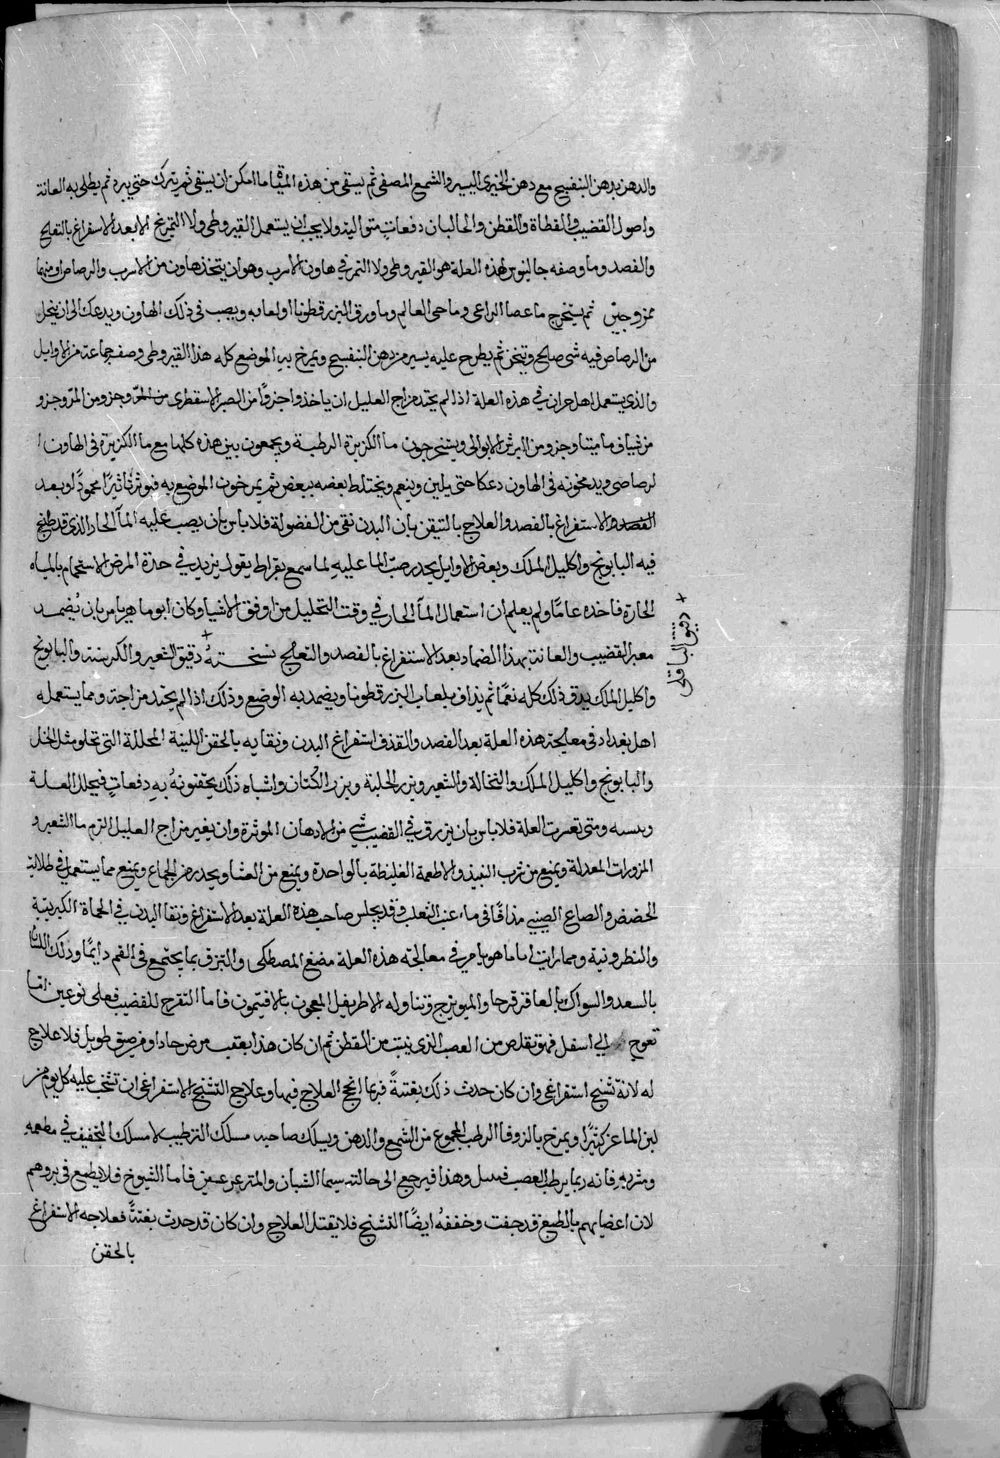 والدهن بدهن البنفسج مع دهن الخيري اليسير والشمع المصفى ثم يسقى من هذه المياه ما امكن ان يسقى ثم يترك حتي يبرد ثم يطلى به العانة
واصول القضيب والقطاة والقطن والحالبان دفعات متوالية ولا يجب ان يستعمل القيروطي ولا التمريخ الا بعد الاستفراغ بالتعليج
والفصد وما وصفه جالينوس لهذه العلة هو القيروطي ولا التمر في هاون الاسرب وهو ان يتخذ هاون من الاسرب والرصاص او منهما
ممزوجين ثم يستخرج ما عصا الراعي وما حي العالم وما ورق البزرقطونا او لعابه ويصب في ذلك الهاون ويدعك الى ان ينحل
من الرصاص فيه شي صالح ويثخن ثم يطرح عليه يسير من دهن البنفسج ويمرخ به الموضع كله هذا القيروطي وصفه جماعة من الاوايل
والذي يستعمل اهل حران في هذه العلة اذا لم يحتد مزاج العليل ان ياخذوا جزوًا من الصبر الاسقطري من وجزو من المرّ وجزو
من شياف ماميثا وجزو من البرش الابوالي ويستخرجون ما الكزبرة الرطبة ويجمعون بين هذه كلها مع ما الكزبرة في الهاون ا
لرصاصي ويدعكونه في الهاون دعكا حتى يلين وينعم ويختلط بعضه ببعض ثم يمرخون الموضع به فيوثر تاثيرًا محمودًا وبعد
الفصد والاستفراغ بالفصد والعلاج بالتيقن بان البدن نقي من الفضولة فلا باس بان يصب عليه المآ الحار الذي قد طبخ
فيه البابونج واكليل الملك وبعض الاوايل يحذر صبّ الما عليهِ لما سمع بقراط يقول يزيد في حدة المرض الاستحمام بالمياه
الحارة فاخذه عامًا ولم يعلم ان استعمال المآ الحار في وقت التحليل من اوفق الاشيا وكان ابو ماهر يامر بان يُضمد
معبر القضيب والعانة بهذا الضماد بعد الاستفراغ بالفصد والتعليج نسخـتـهُ + دقيق الشعير والكرسنة والبابونج
+ دقيق الباقلى
واكليل الملك يدق ذلك كله نعمًا ثم يداف بلعاب البزرقطونا ويضمد به الوضع وذلك اذا لم يحتد مزاجة ومما يستعمله
اهل بغداد في معالجة هذه العلة بعد الفصد والقذف استفراغ البدن ونقايه بالحقن اللينة المحللة التي تحلو مثل الخل
والبابونج واكليل الملك والنخالة والشعير وبزر الحلبة وبزر الكتان واشباه ذلك يحقنونهُ بهِ دفعاتٍ فيحلل العلة
ومتى تعسرت العلة فلا باس بان يزرق في القضيب شي من الادهان الموثرة وان يغير مزاج العليل الزم ما الشعير و
المزورات المعدلة ويمنع من شرب النبيذ والاطعمة الغليظة بالواحدة ويمنع من العشا ويحذر من الجماع ويمنع مما يستعمل في طلائه
الحضض والصاع الصيني مذاقًا في ماء عنب الثعلب وقد يجلس صاحب هذه العلة بعد الاستفراغ ونقا البدن في الحماة الكبريتية
والنطرونية ومما رايت اما ماهر يامر في معالجته هذه العلة مضغ المصطكى والتبزق بما يجتمع في الفم دايمًا ودلك اللثة
بالسعد والسواك بالعاقرقرحا والميويزج وتناوله الاطريفل المعجون بالافتيمون فاما التقرح للقضيب فعلى نوعين اما
تعوج الي اسفل فهو تقلص من العصب الذي ينبت من القطن ثم ان كان هذا بعقب مرض حاد او مرض طويل فلا علاج
له لانه تشنج استفراغي وان كان حدث ذلك بغتةً فربما انجح العلاج فيها وعلاج التشنج الاستفراغي ان تشخب عليه كل يوم من
لبن الماعز كثيرًا ويمرخ بالزوفا الرطب المجموع من الشمع والدهن ويسلك صاحبه مسلك الترطيب لا مسلك التخفيف في مطعمه
ومشربه فانه ربما يرطب العصب وهذا فيرجع الى حالته سيما الشبان والمترعرعين فاما الشيوخ فلا يطمع في بروهم
لان اعضايهم بالطبع قد جفت وخففهُ ايضًا التشنج فلا يقبل العلاج وان كان قد حدث بغتةً فعلاجه الاستفراغ
بالحقن